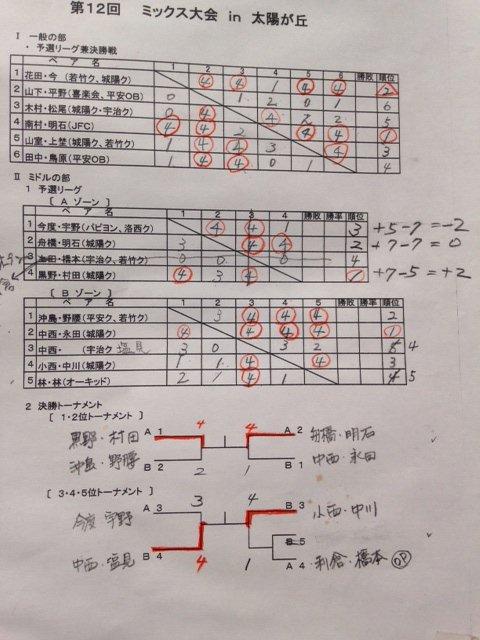 第12回 ミックス大会 in 太陽が丘
Ⅰ 一般の部
・予選リーグ兼決勝戦
ペア名 1 2 3 4 5 6 勝敗 順位
1 花田・今 (若竹ク、城陽ク) ④ ④ 1 ④ ④ 2
2 山下・平野(喜楽会、平安OB) 0 1 2 0 1 6
3 木村・松尾(城陽ク・宇治ク) 0 ④ ④ 2 2 5
4 南村・明石(JFC) ④ ④ 2 ④ ④ 1
5 山室・上埜(城陽ク、若竹ク) 1 ④ ④ 3 ④ 3
6 田中・鳥原(平安OB) 1 ④ ④ 0 1 4
Ⅱ ミドルの部
1 予選リーグ
[ A ゾーン ]
ペア名 1 2 3 4 勝敗 勝率 順位
1 今度・宇野(パピヨン、洛西ク) ④ ④ 1 3 +5-7=-2
2 舟橋・明石(城陽ク) 3 ④ ④ 2 +7-7=0
3 ・橋本(宇治ク、若竹ク) 0 0 0 4
4 黒野・村田(城陽ク) ④ 3 ④ 1 +7-5=+2
[ B ゾーン ]
ペア名 1 2 3 4 5 勝敗 勝率 順位
1 沖島・野腰(平安ク、若竹ク) 3 ④ ④ ④ 2
2 中西・永田(城陽ク) ④ ④ ④ ④ 1
3 中西・ (宇治ク 塩見 3 0 3 2 4
4 小西・中川(城陽ク) 1 1 ④ ④ 3
5 林・林(オーキッド) 2 1 ④ 1 5
2 決勝トーナメント
[ 1・2位トーナメント ]
黒野・村田 A 1 4 4 A 2 舟橋・明石
沖島・野腰 B 2 2 1 B 1 中西・永田
[ 3・4・5位トーナメント ]
今度 宇野 A 3 3 4 B 3 小西・中川
B 5
中西・塩見 B 4 4 1 A 4 利倉・橋本 OP